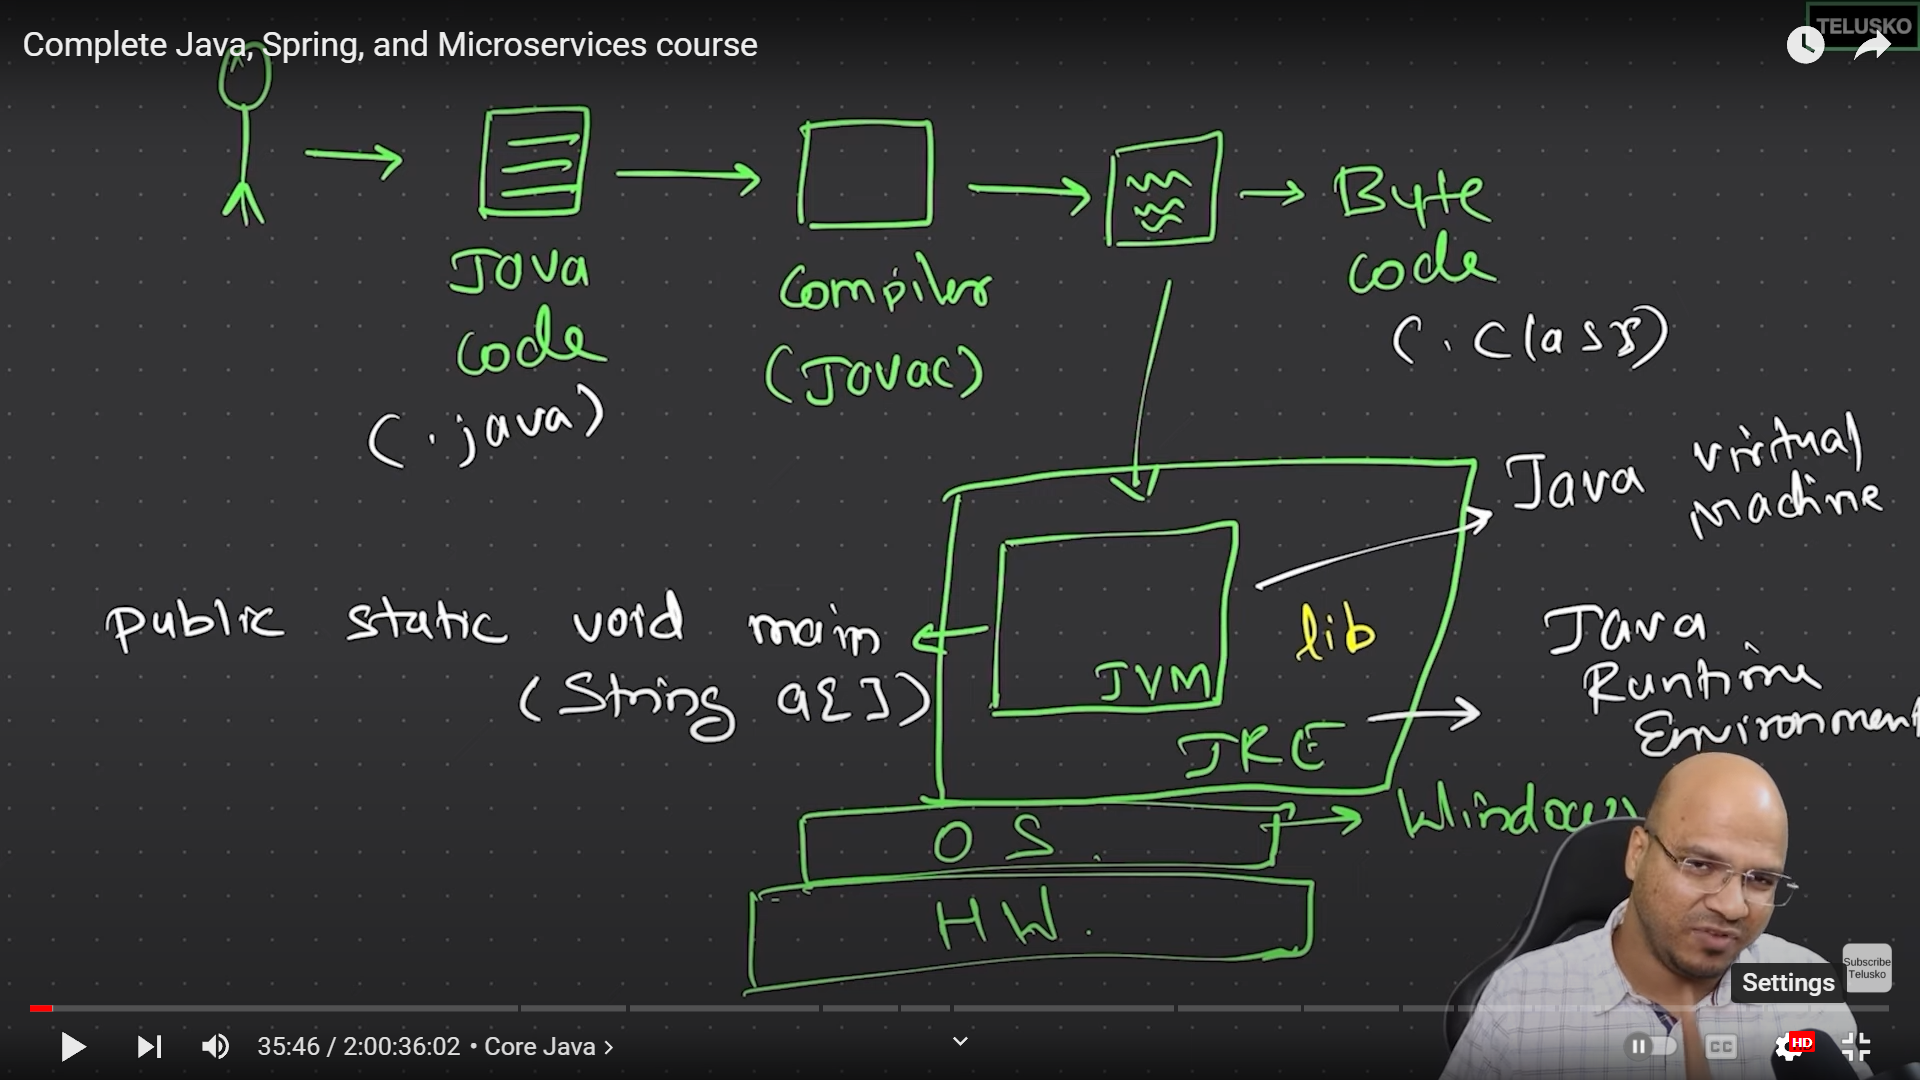 Complete Java, Spring, and Microservices course
TELUSKO
Java
code
(.java)
Compiler
(Javac)
Byte
code
(.class)
Java virtual
machine
public static void main
(String a[])
lib
JVM
JRE
Java
Runtime
Environment
OS.
Windows
HW.
Subscribe
Telusko
Settings
35:46 / 2:00:36:02 • Core Java
CC
HD